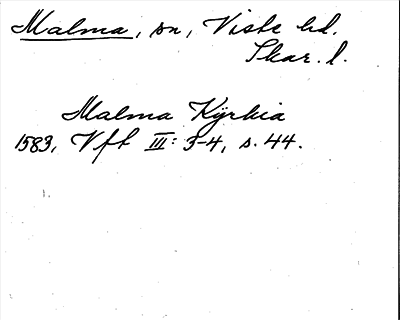 Malma, sn, Viste hd.
Skar. l.
Malma Kÿrkia
1583, Vft III: 3-4, s. 44.